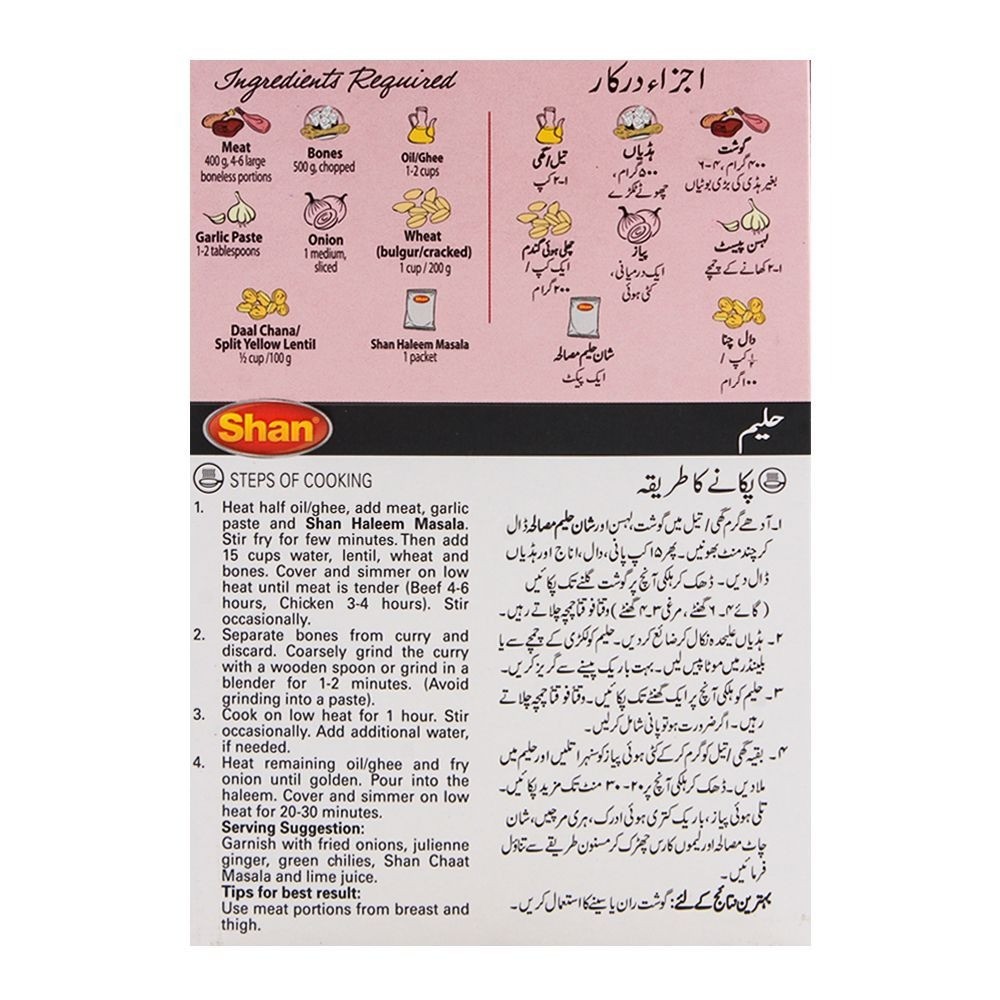 Ingredients Required
Meat
400 g, 4-6 large
boneless portions
Bones
500 g, chopped
Oil/Ghee
1-2 cups
Garlic Paste
1-2 tablespoons
Onion
1 medium,
sliced
Wheat
(bulgur/cracked)
1 cup / 200 g
Daal Chana/
Split Yellow Lentil
½ cup /100 g
Shan
Shan Haleem Masala
1 packet
اجزاء درکار
گوشت
۴۰۰ گرام، ۴-۶
بغیر ہڈی کی بڑی بوٹیاں
ہڈیاں
۵۰۰ گرام،
چھوٹے ٹکڑے
تیل/گھی
۱-۲ کپ
لہسن پیسٹ
۱-۲ کھانے کے چمچے
پیاز
ایک درمیانی،
کٹی ہوئی
چھلی ہوئی گندم
ایک کپ /
۲۰۰ گرام
دال چنا
½ کپ /
۱۰۰ گرام
Shan
شان حلیم مصالحہ
ایک پیکٹ
Shan®
حلیم
STEPS OF COOKING
1. Heat half oil/ghee, add meat, garlic
paste and Shan Haleem Masala.
Stir fry for few minutes. Then add
15 cups water, lentil, wheat and
bones. Cover and simmer on low
heat until meat is tender (Beef 4-6
hours, Chicken 3-4 hours). Stir
occasionally.
2. Separate bones from curry and
discard. Coarsely grind the curry
with a wooden spoon or grind in a
blender for 1-2 minutes. (Avoid
grinding into a paste).
3. Cook on low heat for 1 hour. Stir
occasionally. Add additional water,
if needed.
4. Heat remaining oil/ghee and fry
onion until golden. Pour into the
haleem. Cover and simmer on low
heat for 20-30 minutes.
Serving Suggestion:
Garnish with fried onions, julienne
ginger, green chilies, Shan Chaat
Masala and lime juice.
Tips for best result:
Use meat portions from breast and
thigh.
پکانے کا طریقہ
۱- آدھے گرم گھی/تیل میں گوشت، لہسن اور شان حلیم مصالحہ ڈال
کر چند منٹ بھونیں۔ پھر ۱۵ کپ پانی، دال، اناج اور ہڈیاں
ڈال دیں۔ ڈھک کر ہلکی آنچ پر گوشت گلنے تک پکائیں
(گائے ۴-۶ گھنٹے، مرغی ۳-۴ گھنٹے) وقتاً فوقتاً چمچہ چلاتے رہیں۔
۲- ہڈیاں علیحدہ نکال کر ضائع کر دیں۔ حلیم کو لکڑی کے چمچے سے یا
بلینڈر میں موٹا پیس لیں۔ بہت باریک پیسنے سے گریز کریں۔
۳- حلیم کو ہلکی آنچ پر ایک گھنٹے تک پکائیں۔ وقتاً فوقتاً چمچہ چلاتے
رہیں۔ اگر ضرورت ہو تو پانی شامل کر لیں۔
۴- بقیہ گھی/تیل کو گرم کر کے کٹی ہوئی پیاز کو سنہرا تلیں اور حلیم میں
ملا دیں۔ ڈھک کر ہلکی آنچ پر ۲۰-۳۰ منٹ تک مزید پکائیں۔
تلی ہوئی پیاز، باریک کتری ہوئی ادرک، ہری مرچیں، شان
چاٹ مصالحہ اور لیموں کا رس چھڑک کر مسنون طریقے سے تناول
فرمائیں۔
بہترین نتائج کے لئے: گوشت ران یا سینے کا استعمال کریں۔